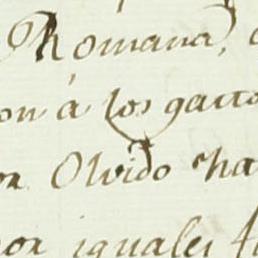 Romana,
on á los gasto
or Olvido ha
por iguales